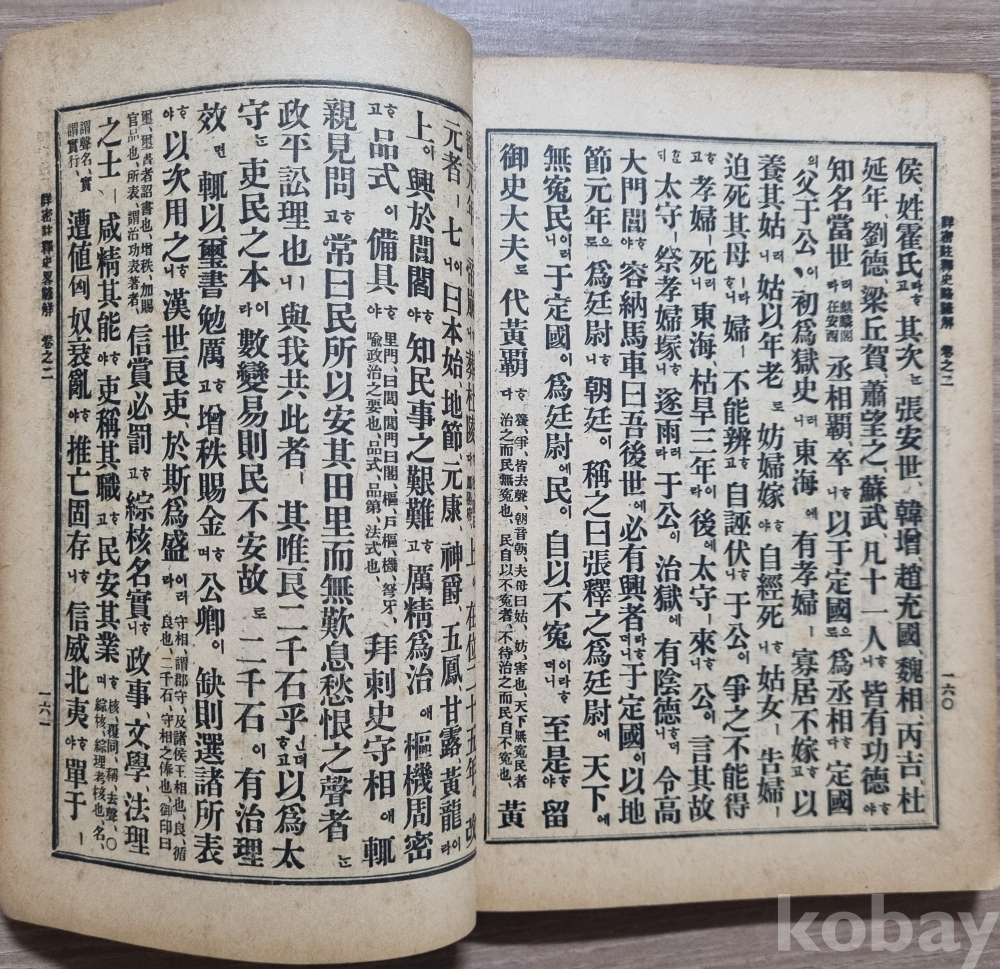 詳密註釋史略諺解 卷之二 一六〇
侯、姓霍氏라고 其次는 張安世、韓增、趙充國、魏相、丙吉、杜
延年、劉德、梁丘賀、蕭望之、蘇武、凡十一人니 皆有功德ᄒᆞ야
知名當世러라 麒麟閣在安西 丞相覇、卒ᄒᆞ니 以于定國으로 爲丞相ᄒᆞ다 定國
의父于公이 初爲獄史러니 東海에 有孝婦ㅣ 寡居不嫁ᄒᆞ고 以
養其姑러니 姑以年老로 妨婦嫁ᄒᆞ야 自經死ᄒᆞ니 姑女ㅣ 告婦ㅣ
迫死其母ㅣ라ᄒᆞ니 婦ㅣ 不能辨ᄒᆞ고 自誣伏ᄒᆞ니 于公이 爭之不能得
ᄒᆞ고 孝婦ㅣ 死ᄒᆞ니 東海、枯旱三年이라 後에 太守ㅣ 來ᄒᆞ니 公이 言其故
ᄒᆞᆫ디 太守ㅣ 祭孝婦塚ᄒᆞ니 遂雨라 于公이 治獄에 有陰德ᄒᆞ더니 令高
大門閭ᄒᆞ야 容納馬車曰吾後世에 必有興者ㅣ라ᄒᆞ더니 于定國이 以地
節元年으로 爲廷尉ᄒᆞ니 朝廷이 稱之曰張釋之爲廷尉에 天下에
無寃民이러니 于定國、爲廷尉에 民이 自以不寃이라ᄒᆞ더니 至是ᄒᆞ야 留
御史大夫로 代黃覇ᄒᆞ다 養、爭、皆去聲、朝音朝、夫母曰姑、妨、害也、天下無寃民者治之而民無寃也、民自以不寃者、不待治之而民自不寃也、 黃
元者ㅣ 七이니 曰本始、地節元康、神爵、五鳳甘露、黃龍이라
上이 興於閭閻ᄒᆞ야 知民事之艱難ᄒᆞ고 厲精爲治애 樞機周密
ᄒᆞ고 品式이 備具ᄒᆞ야 里門、曰閭、閻門曰閻、樞、戶樞、機、弩牙、喩政治之要也、品式、品第、法式也、 拜刺史守相애 輒
親見問ᄒᆞ고 常曰民所以安其田里而無歎息愁恨之聲者는
政平訟理也ㅣ니 與我共此者ㅣ 其唯良二千石乎인뎌ᄒᆞ고 以爲太
守는 吏民之本이라 數變易則民不安故로 二千石이 有治理
效면 輒以璽書勉厲ᄒᆞ고 增秩賜金ᄒᆞ며 公卿이 缺則選諸所表
ᄒᆞ야 以次用之ᄒᆞ니 漢世良吏、於斯爲盛이러라 守相、謂郡守、及諸侯王相也、良、循良也、二千石、守相之俸也、御印曰
璽、璽書者詔書也、增秩、加賜官品也、所表、謂治功表著者、 信賞必罰ᄒᆞ고 綜核名實ᄒᆞ니 政事、文學、法理
之士ㅣ 咸精其能ᄒᆞ야 吏稱其職ᄒᆞ고 民安其業ᄒᆞ며 核、覆同、稱、去聲、〇綜核、綜理考核也、名、
謂聲名、實謂實行、 遭値匈奴衰亂ᄒᆞ야 推亡固存ᄒᆞ니 信威北夷ᄒᆞ야 單于ㅣ
詳密註釋史畧諺解 卷之二 一六一